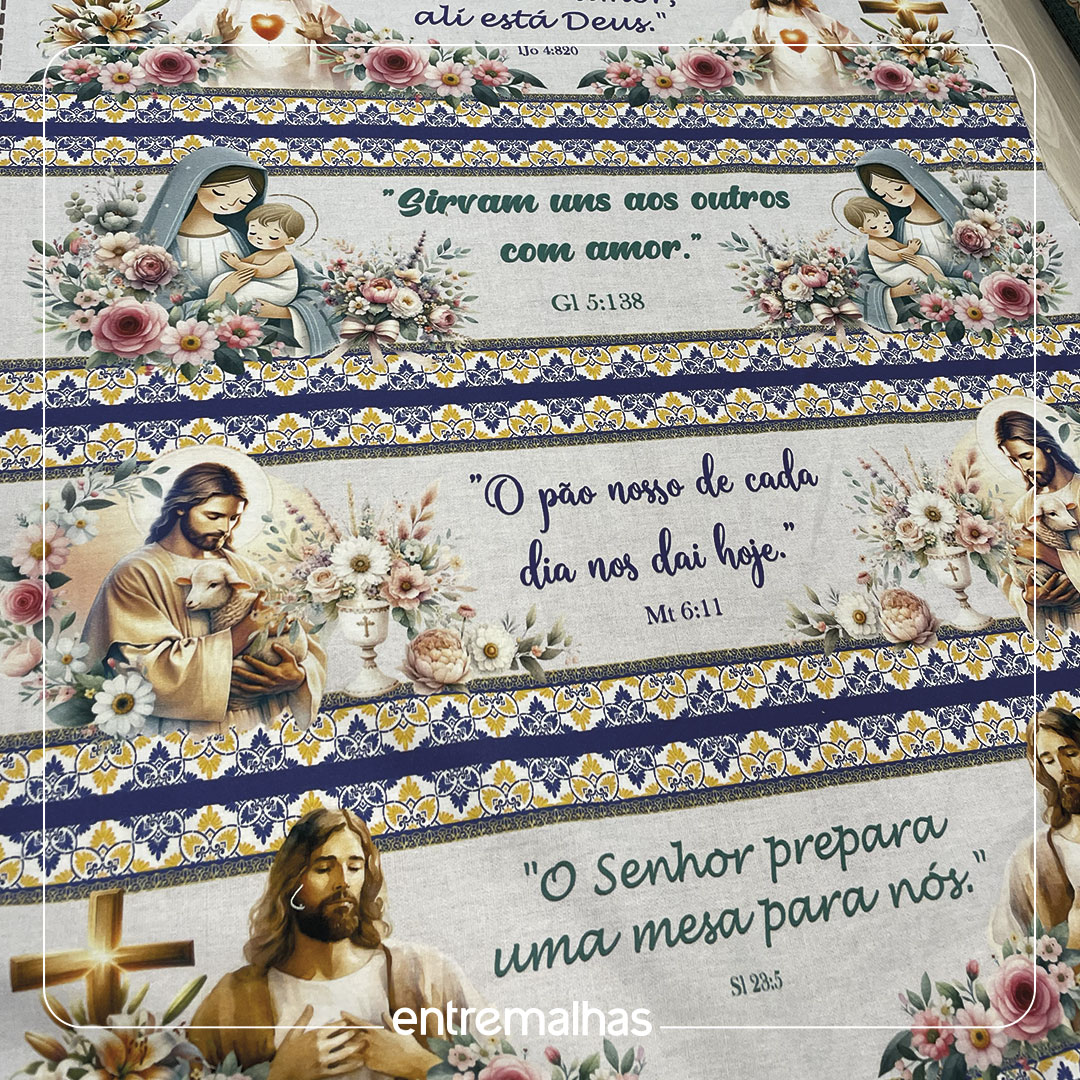 alí está Deus."
1Jo 4:820
"Sirvam uns aos outros
com amor."
Gl 5:138
"O pão nosso de cada
dia nos dai hoje."
Mt 6:11
"O Senhor prepara
uma mesa para nós."
Sl 23:5
entremalhas